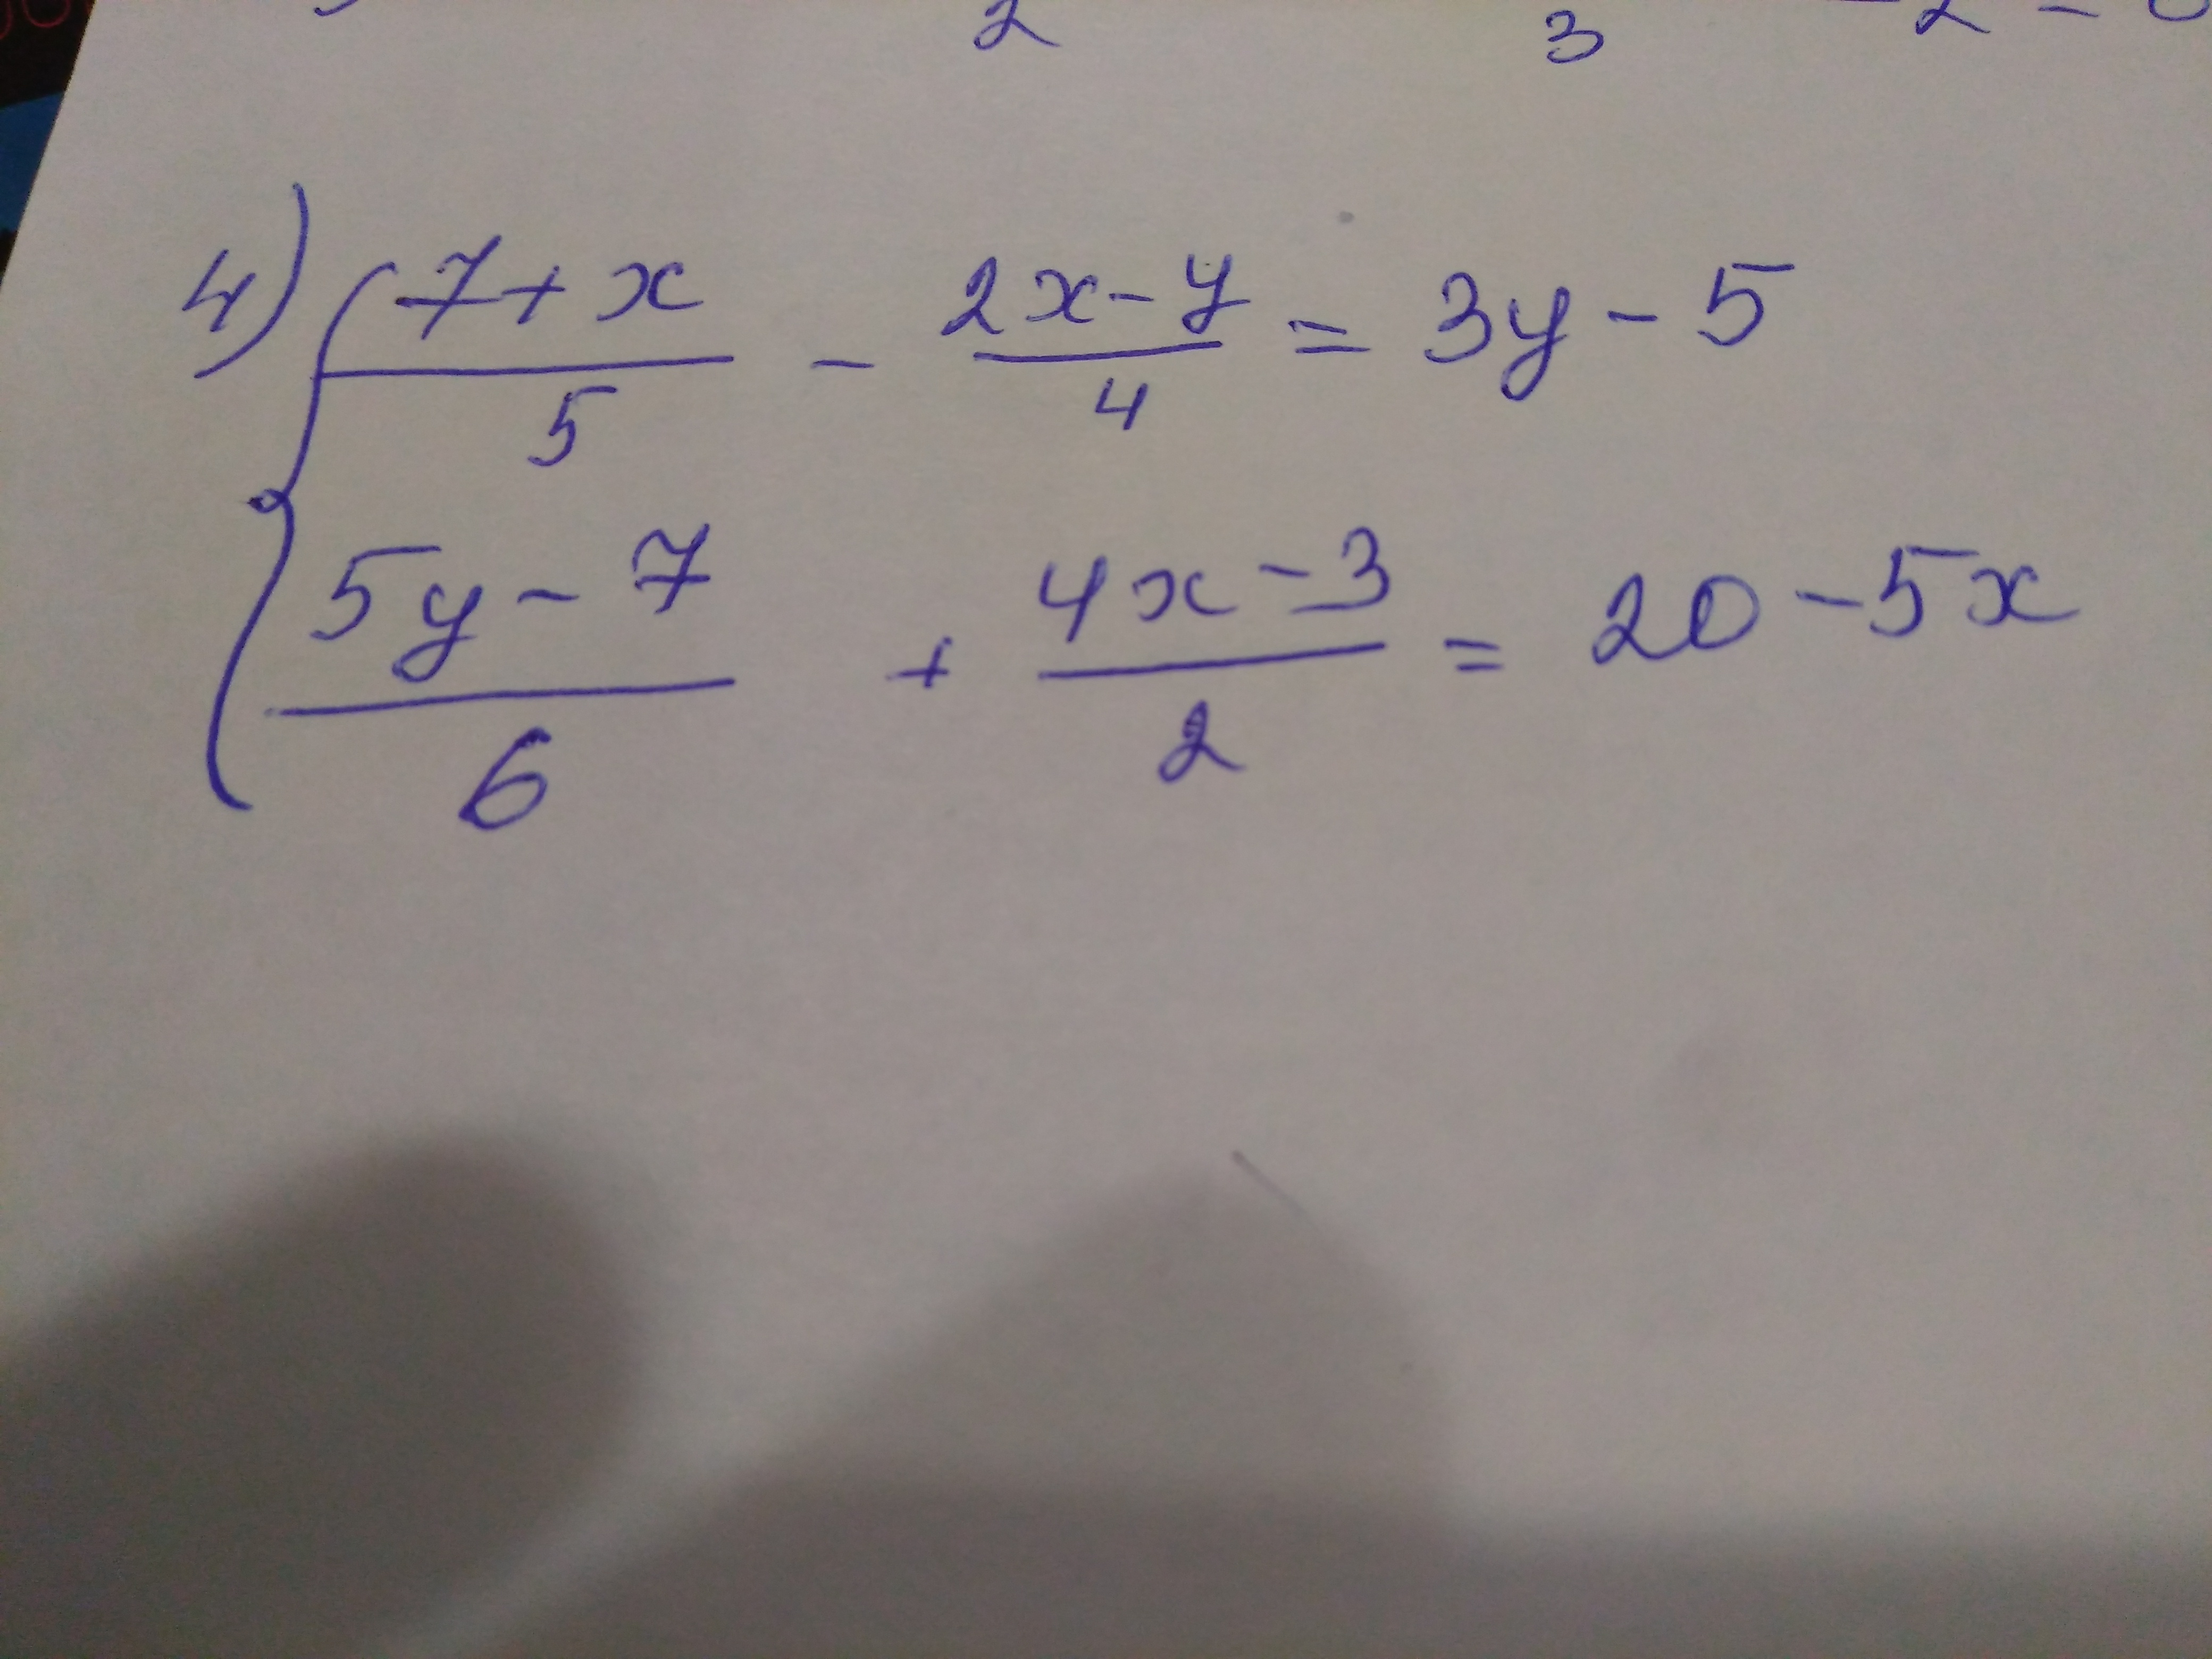 2 3 2 =
4) { (7 + x)/5 - (2x - y)/4 = 3y - 5
(5y - 7)/6 + (4x - 3)/2 = 20 - 5x